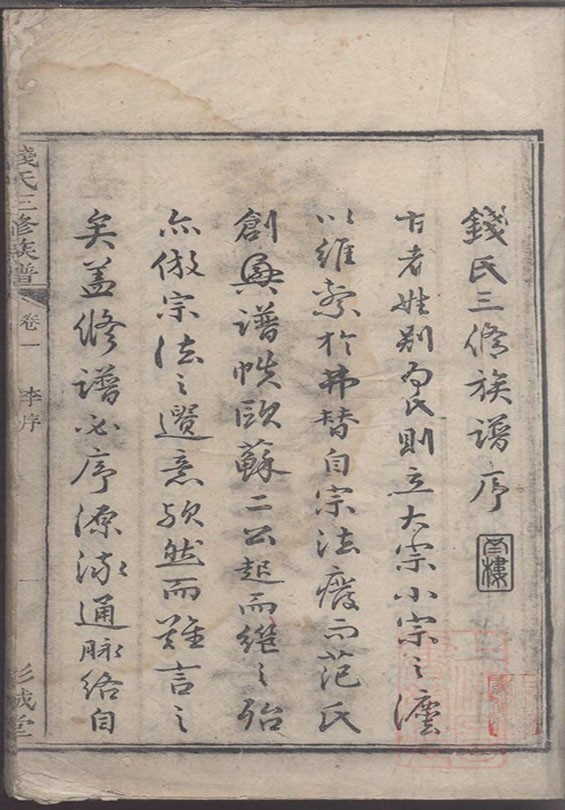 錢氏三脩族譜序
古者姓别为氏則立大宗小宗之灋
以維於弗替自宗法癈而范氏
創興譜帙歐蘇二公起而繼之殆
亦倣宗法之遺意歟然而難言之
矣蓋脩譜必序源流通脉絡自
錢氏三修族譜
卷一
李序
一
彭城堂